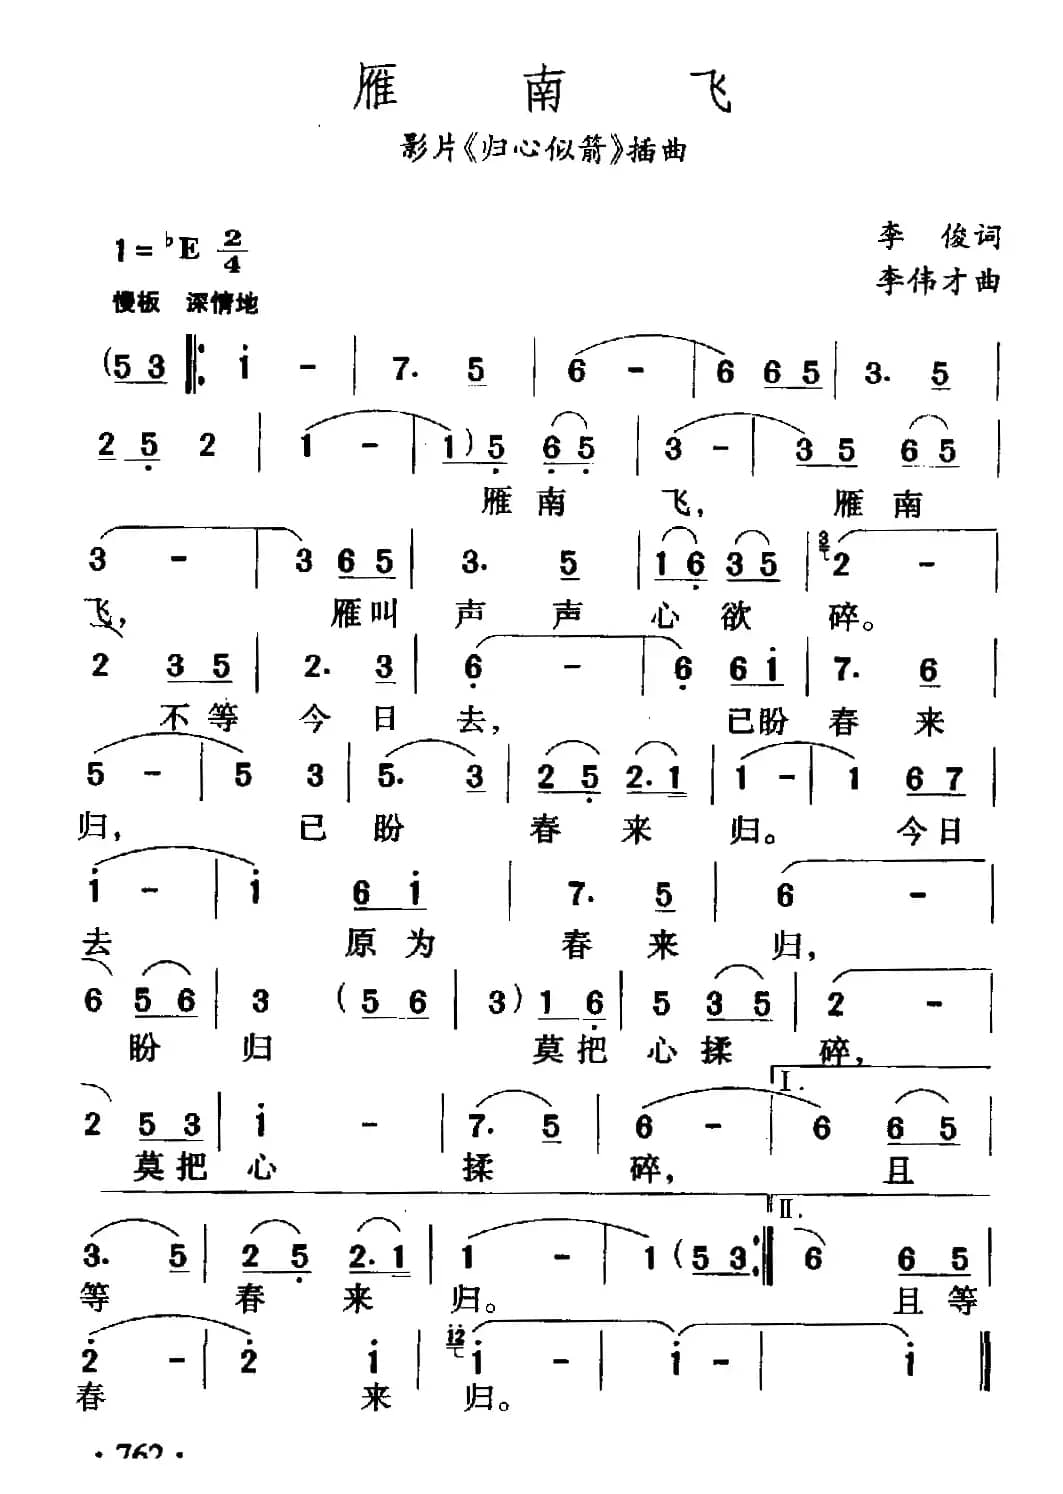 雁 南 飞
影片《归心似箭》插曲
1=♭E 2/4
李 俊词
慢板 深情地
李伟才曲
(5 3 ‖: i - | 7. 5 | 6 - | 6 6 5 | 3. 5 |
2 5 2 | 1 - | 1) 5 6 5 | 3 - | 3 5 6 5 |
雁 南 飞, 雁 南
3 - | 3 6 5 | 3. 5 | 1 6 3 5 | 2 - |
飞, 雁叫 声 声 心 欲 碎。
2 3 5 | 2. 3 | 6 - | 6 6 i | 7. 6 |
不 等 今 日 去, 已盼 春 来
5 - | 5 3 | 5. 3 | 2 5 2. 1 | 1 - | 1 6 7 |
归, 已 盼 春 来 归。 今日
i - | i 6 i | 7. 5 | 6 - |
去 原 为 春 来 归,
6 5 6 | 3 (5 6 | 3) 1 6 | 5 3 5 | 2 - |
盼 归 莫把 心 揉 碎,
I.
2 5 3 | i - | 7. 5 | 6 - | 6 6 5 |
莫把 心 揉 碎, 且
II.
3. 5 | 2 5 2. 1 | 1 - | 1 (5 3 :‖ 6 6 5 |
等 春 来 归。 且 等
2 - | 2 i | i2 i - | i - | i ‖
春 来 归。
· 762 ·